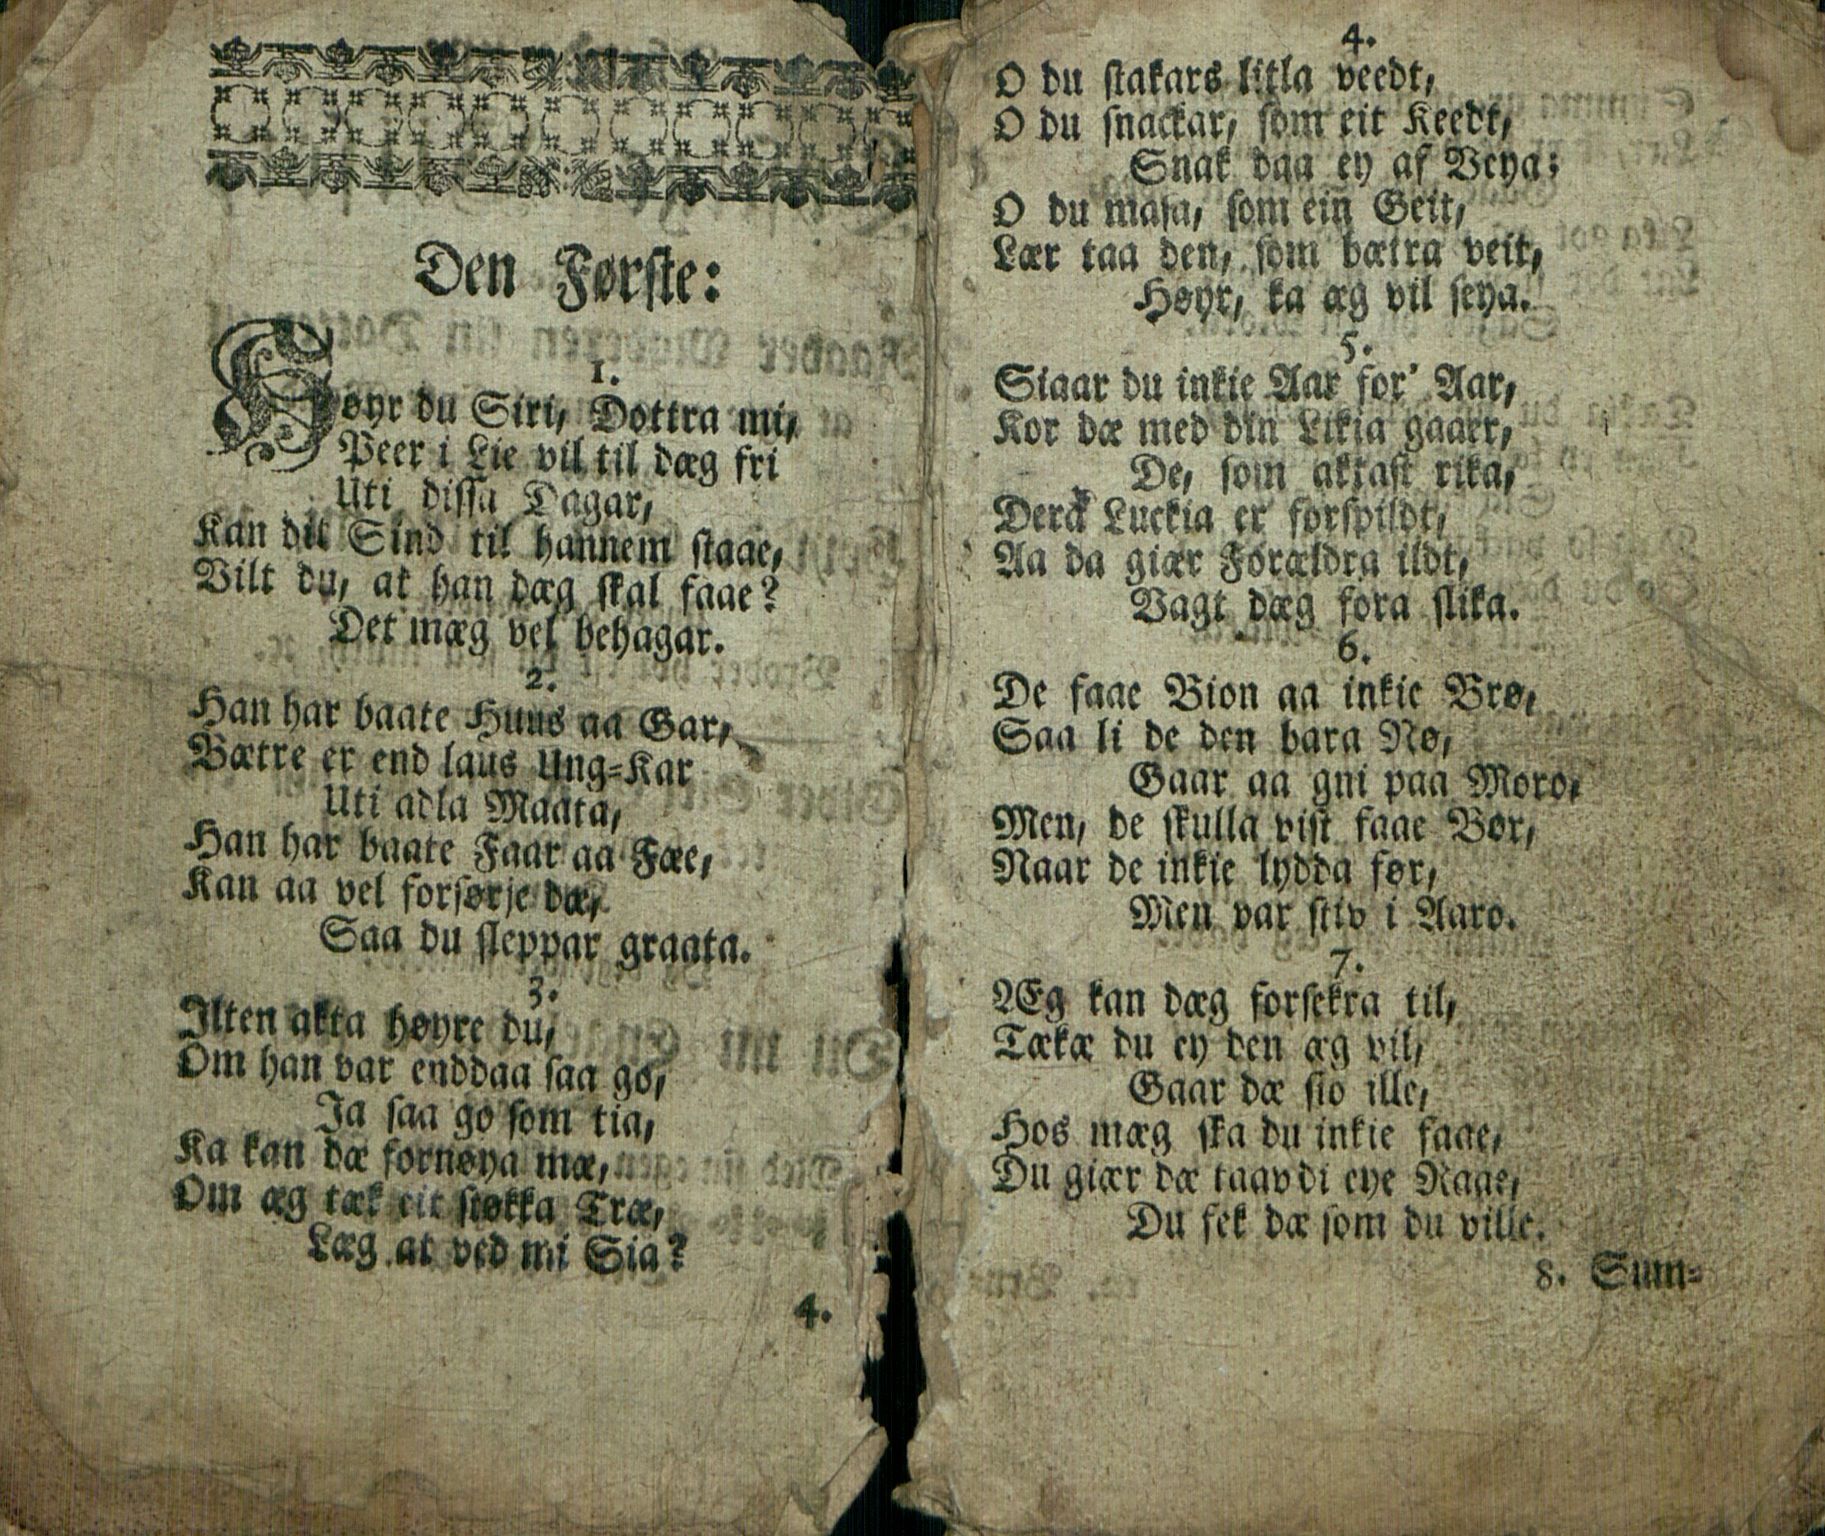 Den Første:
1.
Høyr du Siri, Dottra mi,
Peer i Lie vil til dæg fri
Uti dissa Dagar,
Kan dit Sind til hannem staae,
Vilt du, at han dæg skal faae?
Det mæg vel behagar.
2.
Han har baate Huus aa Gar,
Bætre er end laus Ung-Kar
Uti adla Maata,
Han har baate Faar aa Fæe,
Kan aa vel forsørje dæ,
Saa du sleppar graata.
3.
Ilten akta høyre du,
Om han var enddaa saa go,
Ja saa go som tia,
Ka kan dæ fornøya mæ,
Om æg tæk eit støkka Træ,
Læg at ved mi Sia?
4.
4.
O du stakars litla veedt,
O du snackar, som eit Keedt,
Snak daa ey af Veya;
O du masa, som ein Geit,
Lær taa den, som bætra veit,
Høyr, ka æg vil seya.
5.
Siaar du inkie Aar for' Aar,
Kor dæ med din Likia gaarr,
De, som aktast rika,
Derá Luckia er forspildt,
Aa da giær Forældra ildt,
Vagt dæg fora slika.
6.
De faae Bion aa inkie Brø,
Saa li de den bara Nø,
Gaar aa gni paa Moro,
Men, de skulla vist faae Bør,
Naar de inkie lydda før,
Men var stiv i Aaro.
7.
Æg kan dæg forsekra til,
Tækæ du ey den æg vil,
Gaar dæ sio ille,
Hos mæg ska du inkie faae,
Du giær dæ taavdi eye Raae,
Du fek dæ som du ville.
8. Sum-